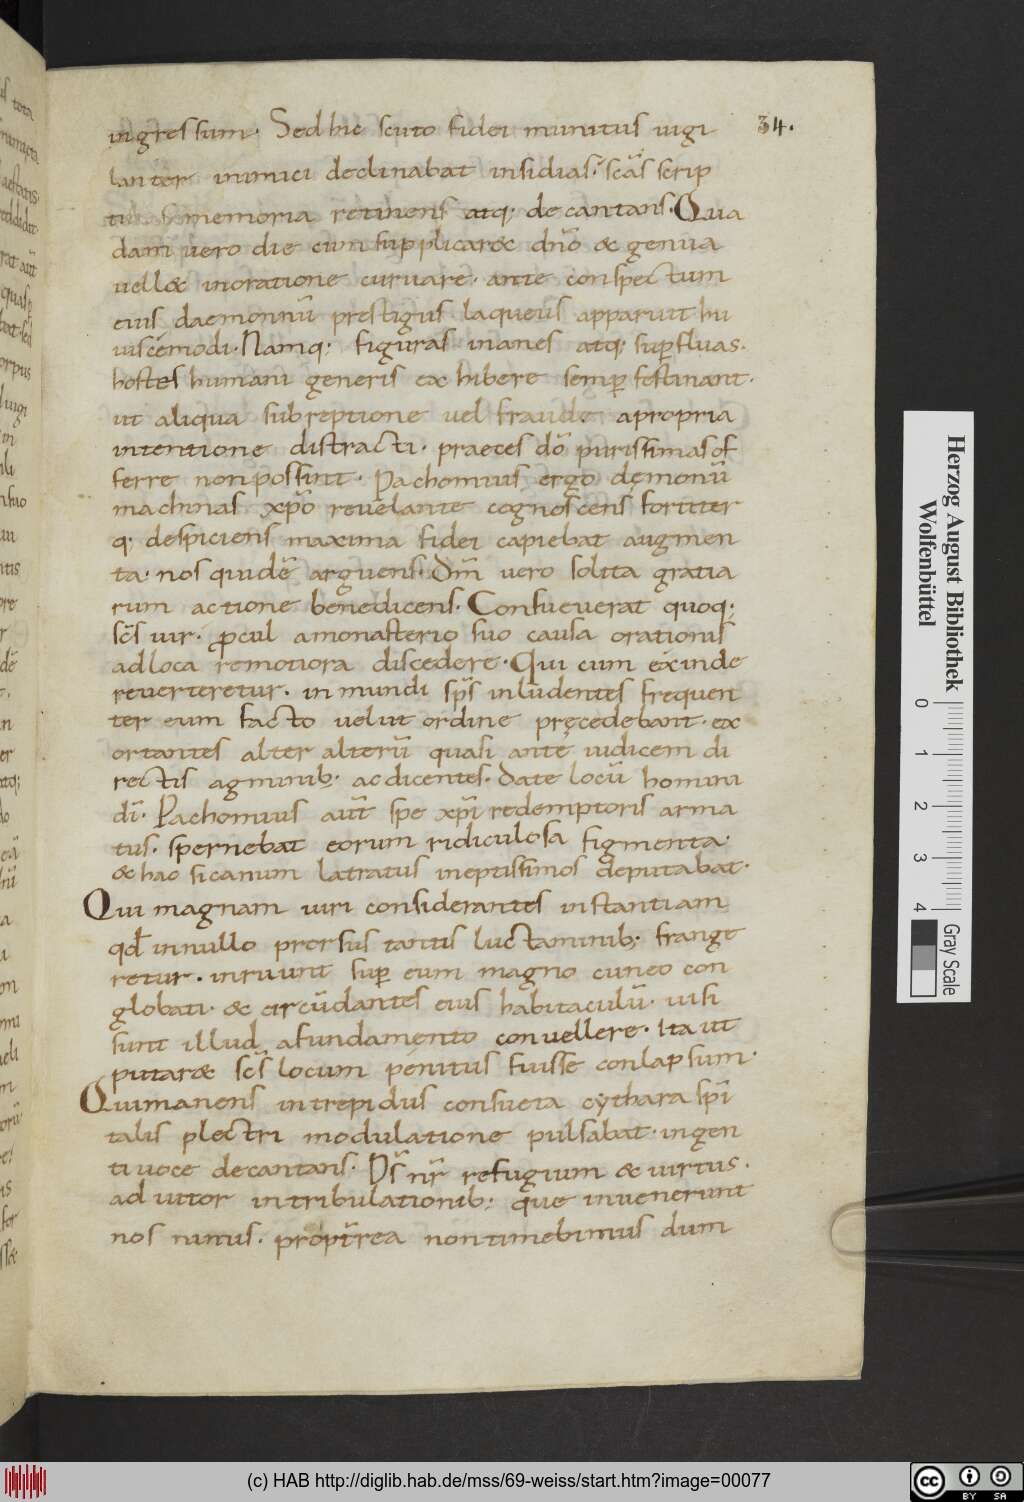 34.
ingressum. Sed hic scuto fidei munitus uigi
lanter inimici declinabat insidias. scãs scrip
memoria retinens atq; decantans. Qua
dam uero die cum supplicar& dño & genua
uell& inoratione curuare. ante conspectum
eius daemonnũ prestigiis laqueus apparuit hu
iuscemodi. Namq; figuras inanes atq; sup̱fluas.
hostes humani generis exhibere semp̱ festinant.
ut aliqua subreptione uel fraude apropria
intentione distracti. praeces dõ purissimas of
ferre nonpossint. Pachomius ergo demonũ
machinas xp̃o reuelante cognoscens fortiter
q; despiciens maxima fidei capiebat augmen
ta. nos quidẽ arguens. Dm̃ uero solita gratia
rum actione benedicens. Consueuerat quoq;
sc̃s uir. ꝓcul amonasterio suo causa orationis
adloca remotiora discedere. Qui cum exinde
reuerteretur. inmundi sp̃s inludentes frequen
ter eum facto uelut ordine pręcedebant. ex
ortantes alter alterũ quasi ante iudicem di
rectis agminib; ac dicentes. date locũ homini
dĩ. Pachomius aũt spe xp̃i redemptoris arma
tus. spernebat eorum ridiculosa figmenta.
& hac si canum latratus ineptissimos deputabat.
Qui magnam uiri considerantes instantiam
qđ innullo prorsus tantis luctaminib; frange
retur. inruunt sup̱ eum magno cuneo con
globati. & circũdantes eius habitaculũ. uisi
sunt illud afundamento conuellere. Ita ut
putar& sc̃s locum penitus fuisse conlapsum.
Quimanens intrepidus consueta cythara sp̃i
talis plectri modulatione pulsabat. ingen
ti uoce decantans. Ds̃ nr̃ refugium & uirtus.
adiutor intribulationib; que inuenerunt
nos nimis. propt̃rea nontimebimus dum
Herzog August Bibliothek
Wolfenbüttel
0 1 2 3 4
Gray Scale
(c) HAB http://diglib.hab.de/mss/69-weiss/start.htm?image=00077
cc BY SA